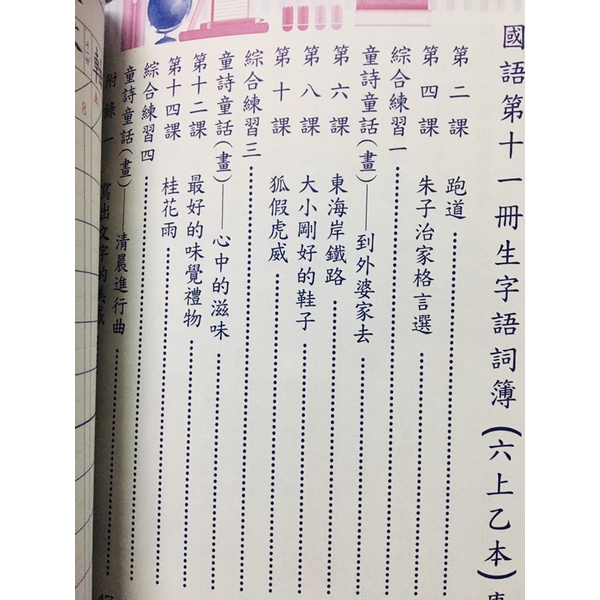 國語第十一冊生字語詞簿(六上乙本)
第二課 跑道
第四課 朱子治家格言選
綜合練習一
童詩童話(畫)——到外婆家去
第六課 東海岸鐵路
第八課 大小剛好的鞋子
第十課 狐假虎威
綜合練習三
童詩童話(畫)——心中的滋味
第十二課 最好的味覺禮物
第十四課 桂花雨
綜合練習四
童詩童話(畫)——清晨進行曲
附錄一 寫出文字的美感
8